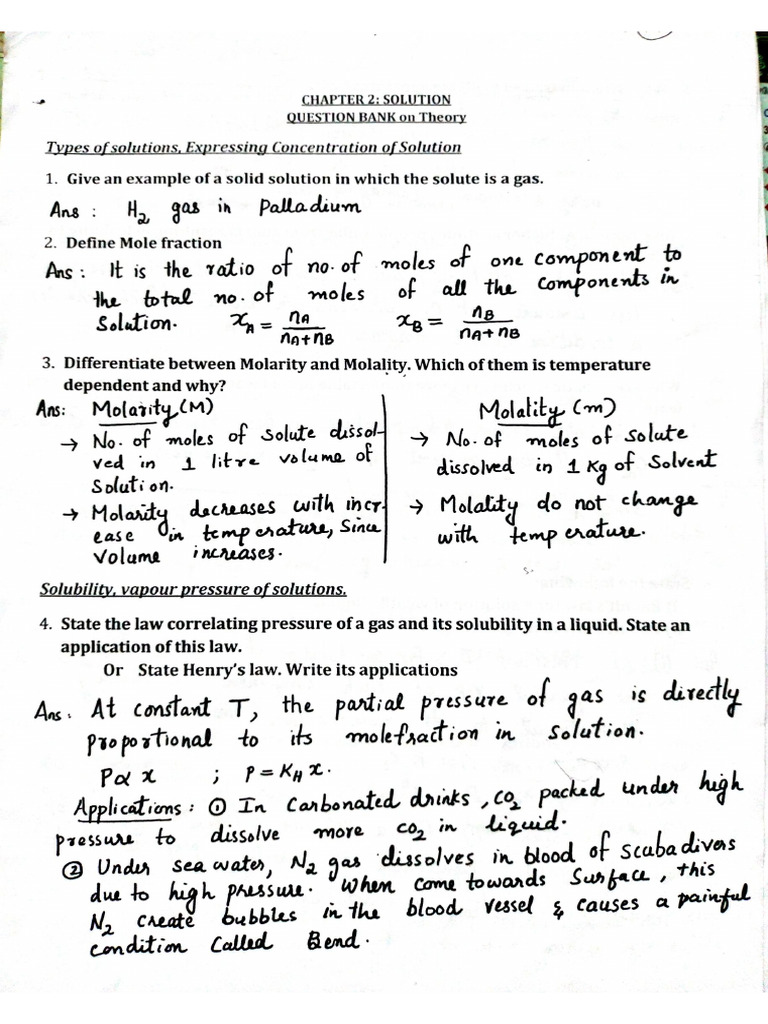 CHAPTER 2: SOLUTION
QUESTION BANK on Theory
Types of solutions, Expressing Concentration of Solution
1. Give an example of a solid solution in which the solute is a gas.
Ans : H₂ gas in Palladium
2. Define Mole fraction
Ans : It is the ratio of no. of moles of one component to
the total no. of moles of all the components in
Solution. x_A = n_A/(n_A+n_B) x_B = n_B/(n_A+n_B)
3. Differentiate between Molarity and Molality. Which of them is temperature
dependent and why?
Ans: Molarity (M)
→ No. of moles of solute dissol-
ved in 1 litre volume of
Solution.
→ Molarity decreases with incr-
ease in temperature, Since
Volume increases.
Molality (m)
→ No. of moles of solute
dissolved in 1 Kg of Solvent
→ Molality do not change
with temperature.
Solubility, vapour pressure of solutions.
4. State the law correlating pressure of a gas and its solubility in a liquid. State an
application of this law.
Or State Henry's law. Write its applications
Ans : At constant T, the partial pressure of gas is directly
proportional to its molefraction in solution.
P∝ x ; P = K_H x.
Applications : ① In Carbonated drinks, CO₂ packed under high
pressure to dissolve more CO₂ in liquid.
② Under sea water, N₂ gas dissolves in blood of scuba divers
due to high pressure. When come towards Surface, this
N₂ create bubbles in the blood vessel & causes a painful
condition Called Bend.